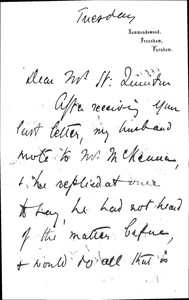 Tuesday
Hammondswood,
Frensham,
Farnham.
Dear Mr St. Quintin
After receiving your
last letter, my husband
wrote to Mr McKenna,
& he replied at once
to say, he had not heard
of the matter before,
& would do all that is